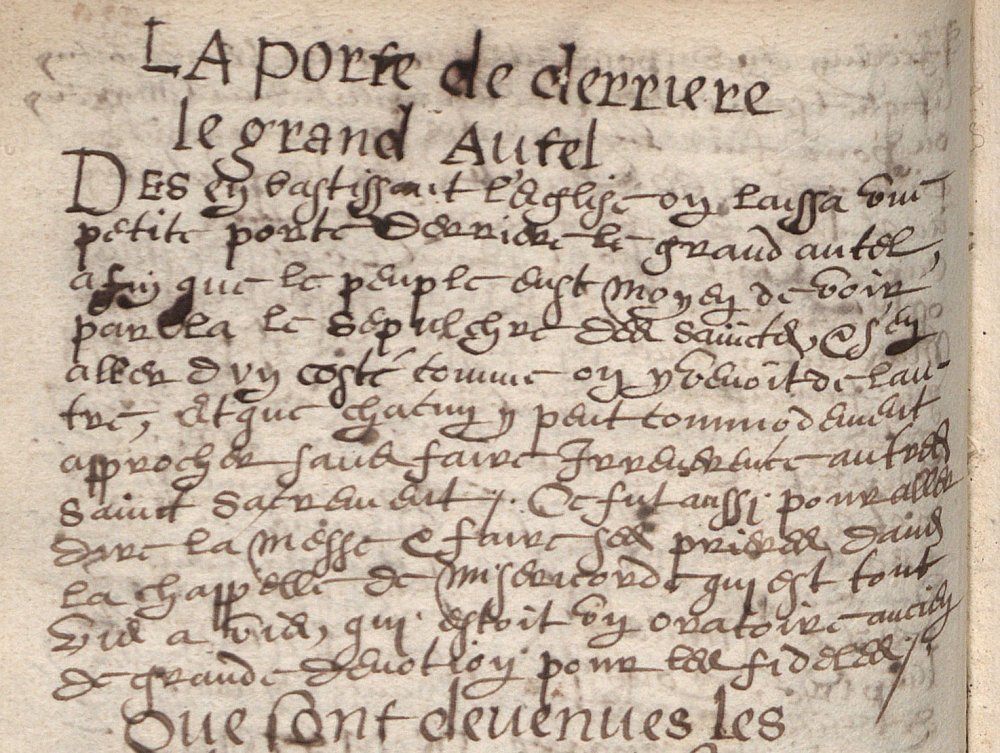 LA porte de derriere
le grand Autel
DES en bastissant l'eglise on laissa vne
petite porte derriere le grand autel,
afin que le peuple eust moyen de voir
par la le sepulchre des saincts, & s'en
aller d'vn costé comme on y venoit de l'au-
tre, et que chacun y peut commodement
approcher sans faire Irreuerence au tres
sainct sacrement. Ce fut aussi pour aller
dire la messe & faire ses prieres dans
la chappelle de misericorde qui est tout
vis a vis, qui estoit vn oratoire ancien
de grande deuotion pour les fideles
Que sont deuenues les